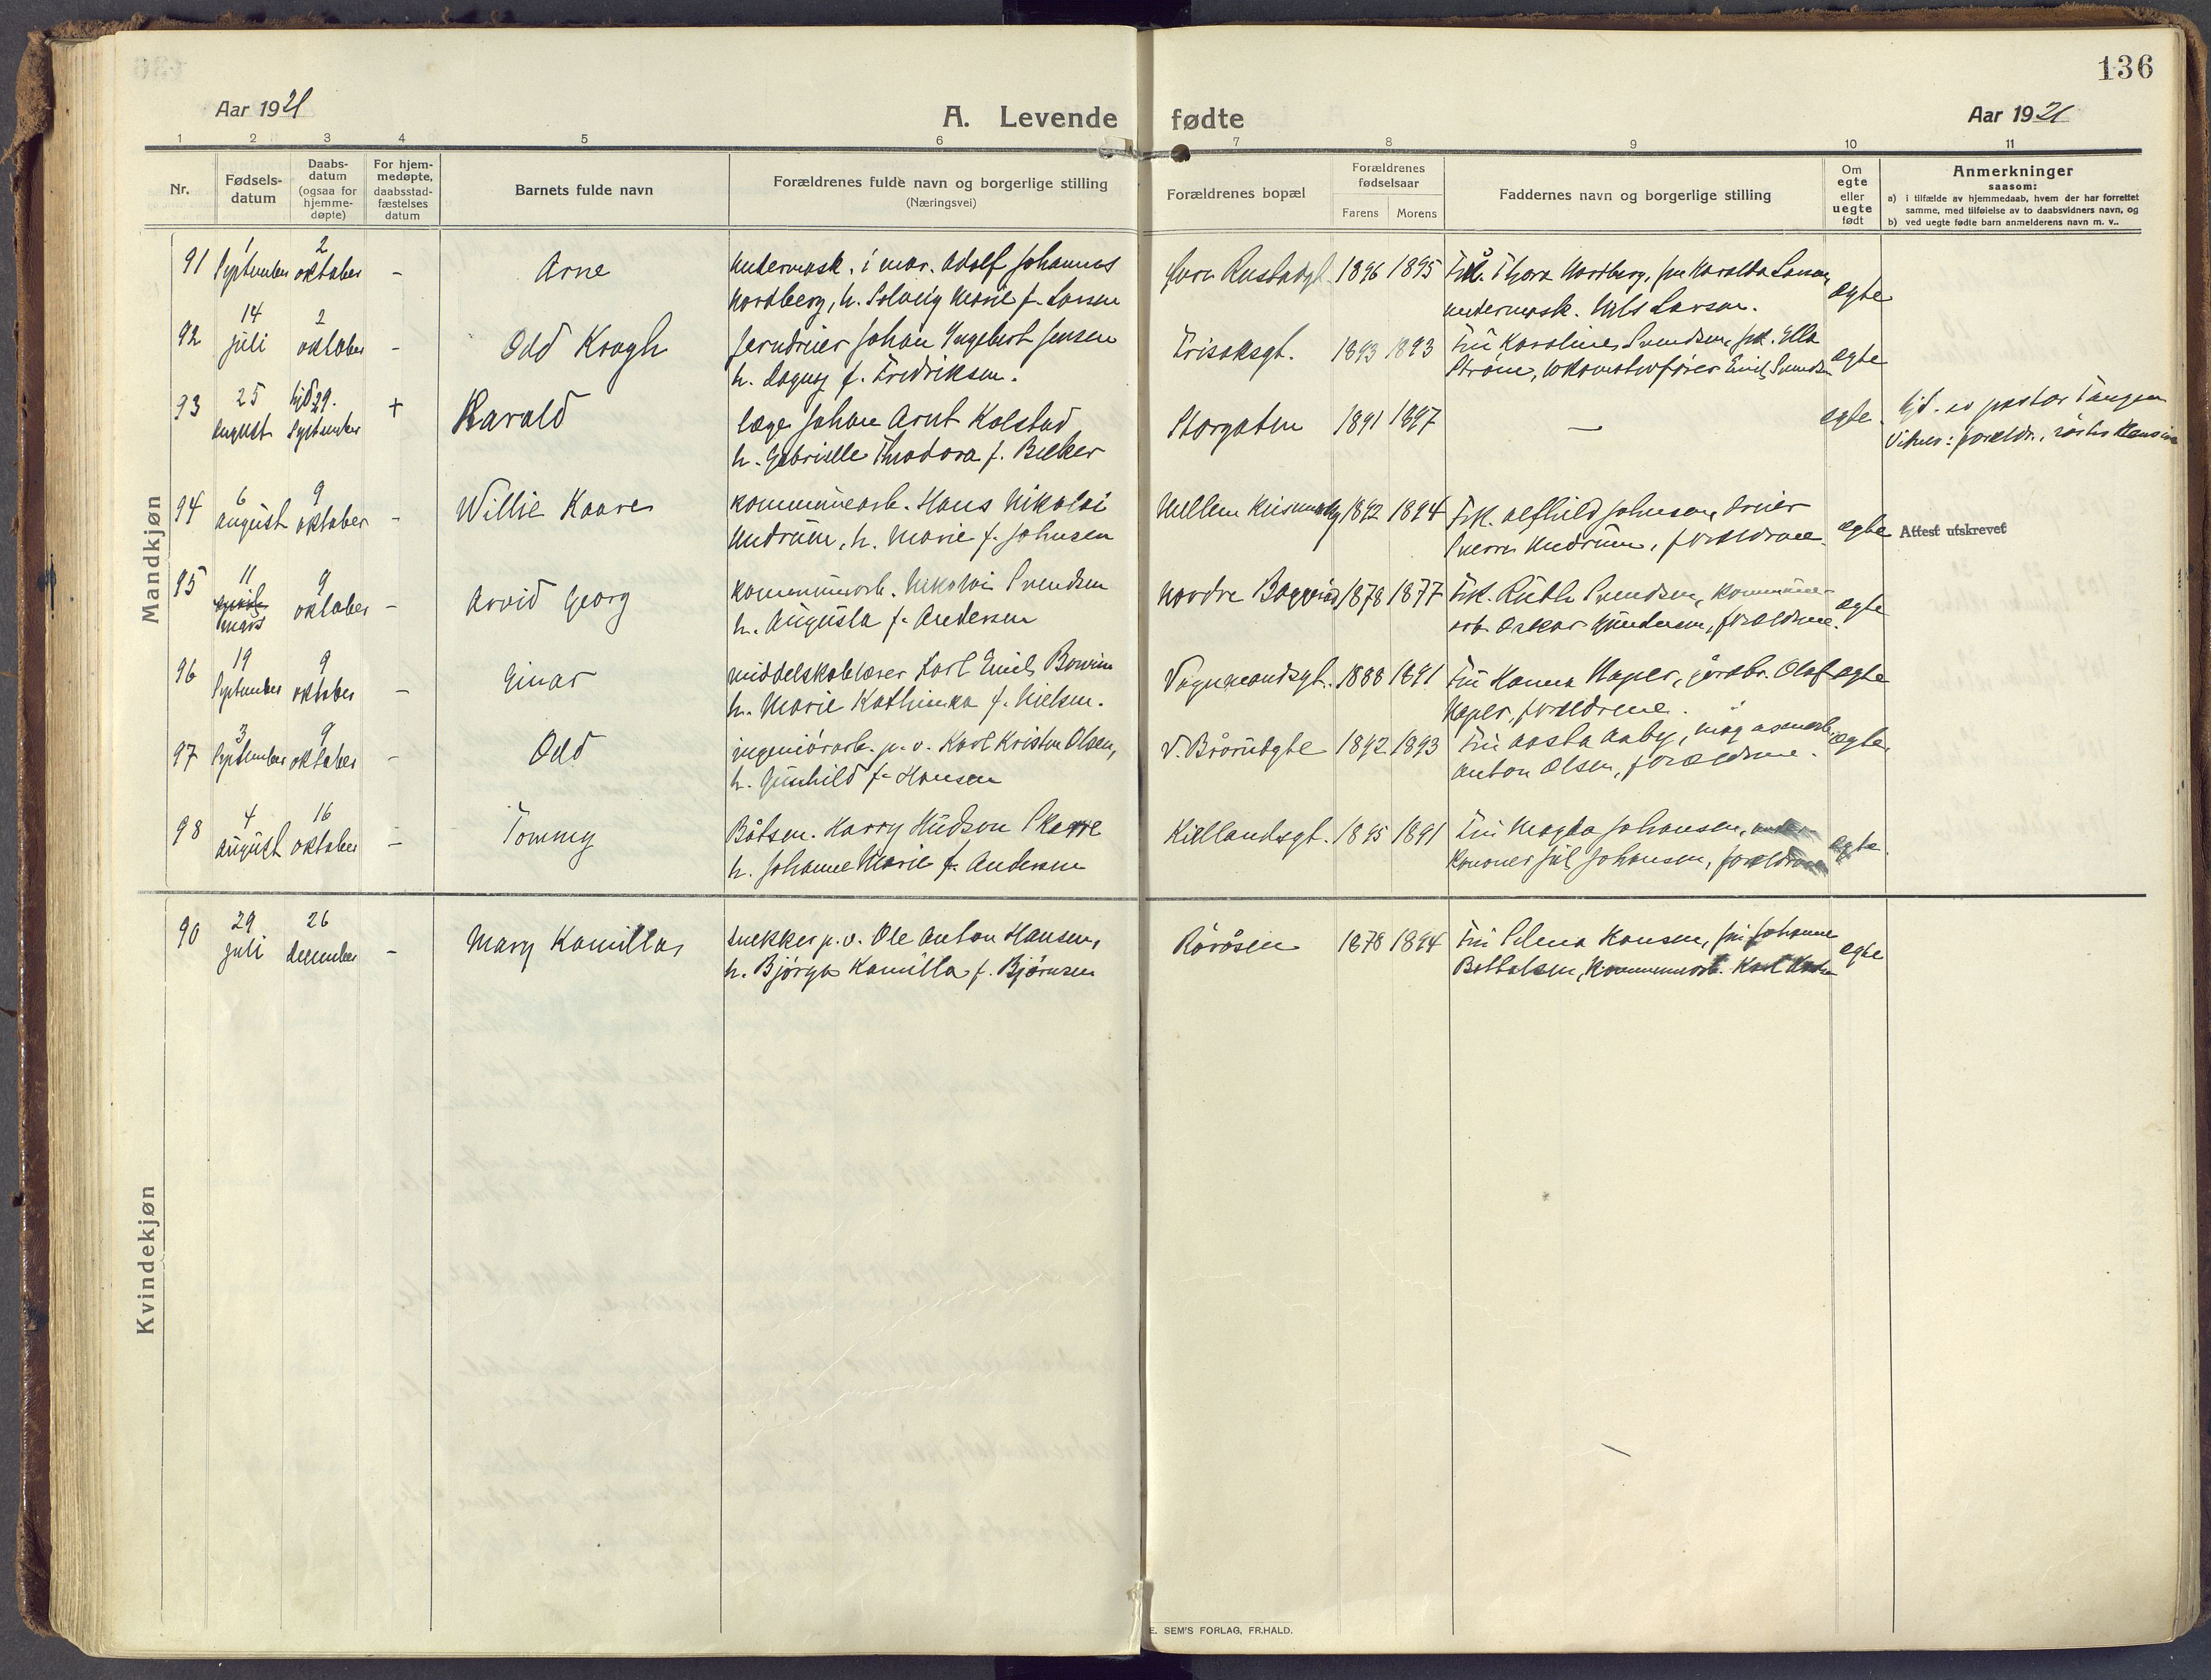 136
Aar 1921
A. Levende fødte
Aar 1921
1 2 3 4 5 6 7 8 9 10 11
Nr.
Fødsels-
datum
Daabs-
datum
(ogsaa for
hjemme-
døpte)
For hjem-
medøpte,
daabsstad-
fæstelses
datum
Barnets fulde navn
Forældrenes fulde navn og borgerlige stilling
(Næringsvei)
Forældrenes bopæl
Forældrenes
fødselsaar
Farens Morens
Faddernes navn og borgerlige stilling
Om
egte
eller
uegte
født
Anmerkninger
saasom:
a) i tilfælde av hjemmedaab, hvem der har forrettet
samme, med tilføielse av to daabsvidners navn, og
b) ved uegte fødte barn anmelderens navn m. v..
Mandkjøn
91 1 September 2 oktober - Arne
undermask. i mar. Adolf Johannes
Nordberg, h. Solveig Marie f. Larsen
1896 1895
Thora Nordberg, fru Haralda Larsen,
undermask. Nils Larsen.
egte
92 14 juli 2 oktober - Odd Krogh
jerndreier Johan Ingebert Jensen
h. Dagny f. Fredriksen.
1893 1893
Fru Karoline Svendsen, frk. Ella
Strøm, lokomotivfører Emil Svendsen
egte
93 25 august hjd 29. September + Harald
læge Johan Arnt Kolstad
h. Gabrielle Theodora f. Becker
Storgaten 1891 1897 — egte.
hjd. av pastor Tangen
Vitner: forældr., søster
94 6 august 9 oktober - Willie Kaare
kommunearb. Hans Nikolai
Undrum, h. Marie f. Johnsen
1892 1894
Frk. Alfhild Johnsen, dreier
Sverre Undrum, forældrene.
egte
Attest utskrevet
95 11 april mars 9 oktober - Arvid Georg
kommunearb. Nikolai Svendsen
h. Augusta f. Andersen
Nordre 1878 1877
Frk. Ruth Svendsen, kommune-
arb. Oskar Gundersen, forældrene.
egte
96 19 September 9 oktober - Einar
middelskolelærer Karl Emil
h. Marie Kathinka f. Nielsen.
Vognmandsgt. 1888 1891
Fru Hanna Hapler, Olaf
Hapler, forældrene.
egte
97 3 September 9 oktober - Odd
ingeniørarb. p. v. Karl Kristen Olsen,
h. Gunhild f. Hansen
1892 1893
Fru Aasta Aaby,
Anton Olsen, forældrene.
egte
98 4 august 16 oktober - Tommy
Båtsm. Harry Hudson Skarre
h. Johanne Marie f. Andersen
Kiellandsgt. 1895 1891
Fru Magda Johansen,
Jul Johansen, forældrene
egte.
Kvindekjøn
90 29 juli 26 december - Mary Kamilla
snekker p. v. Ole Anton Hansen,
h. Bjørga Kamilla f. Bjørnsen
Råråsen 1878 1894
Fru Selma Hansen, fru Johanne
Bottolsen, kommunearb. Karl
egte
E. SEM'S FORLAG, FR.HALD.